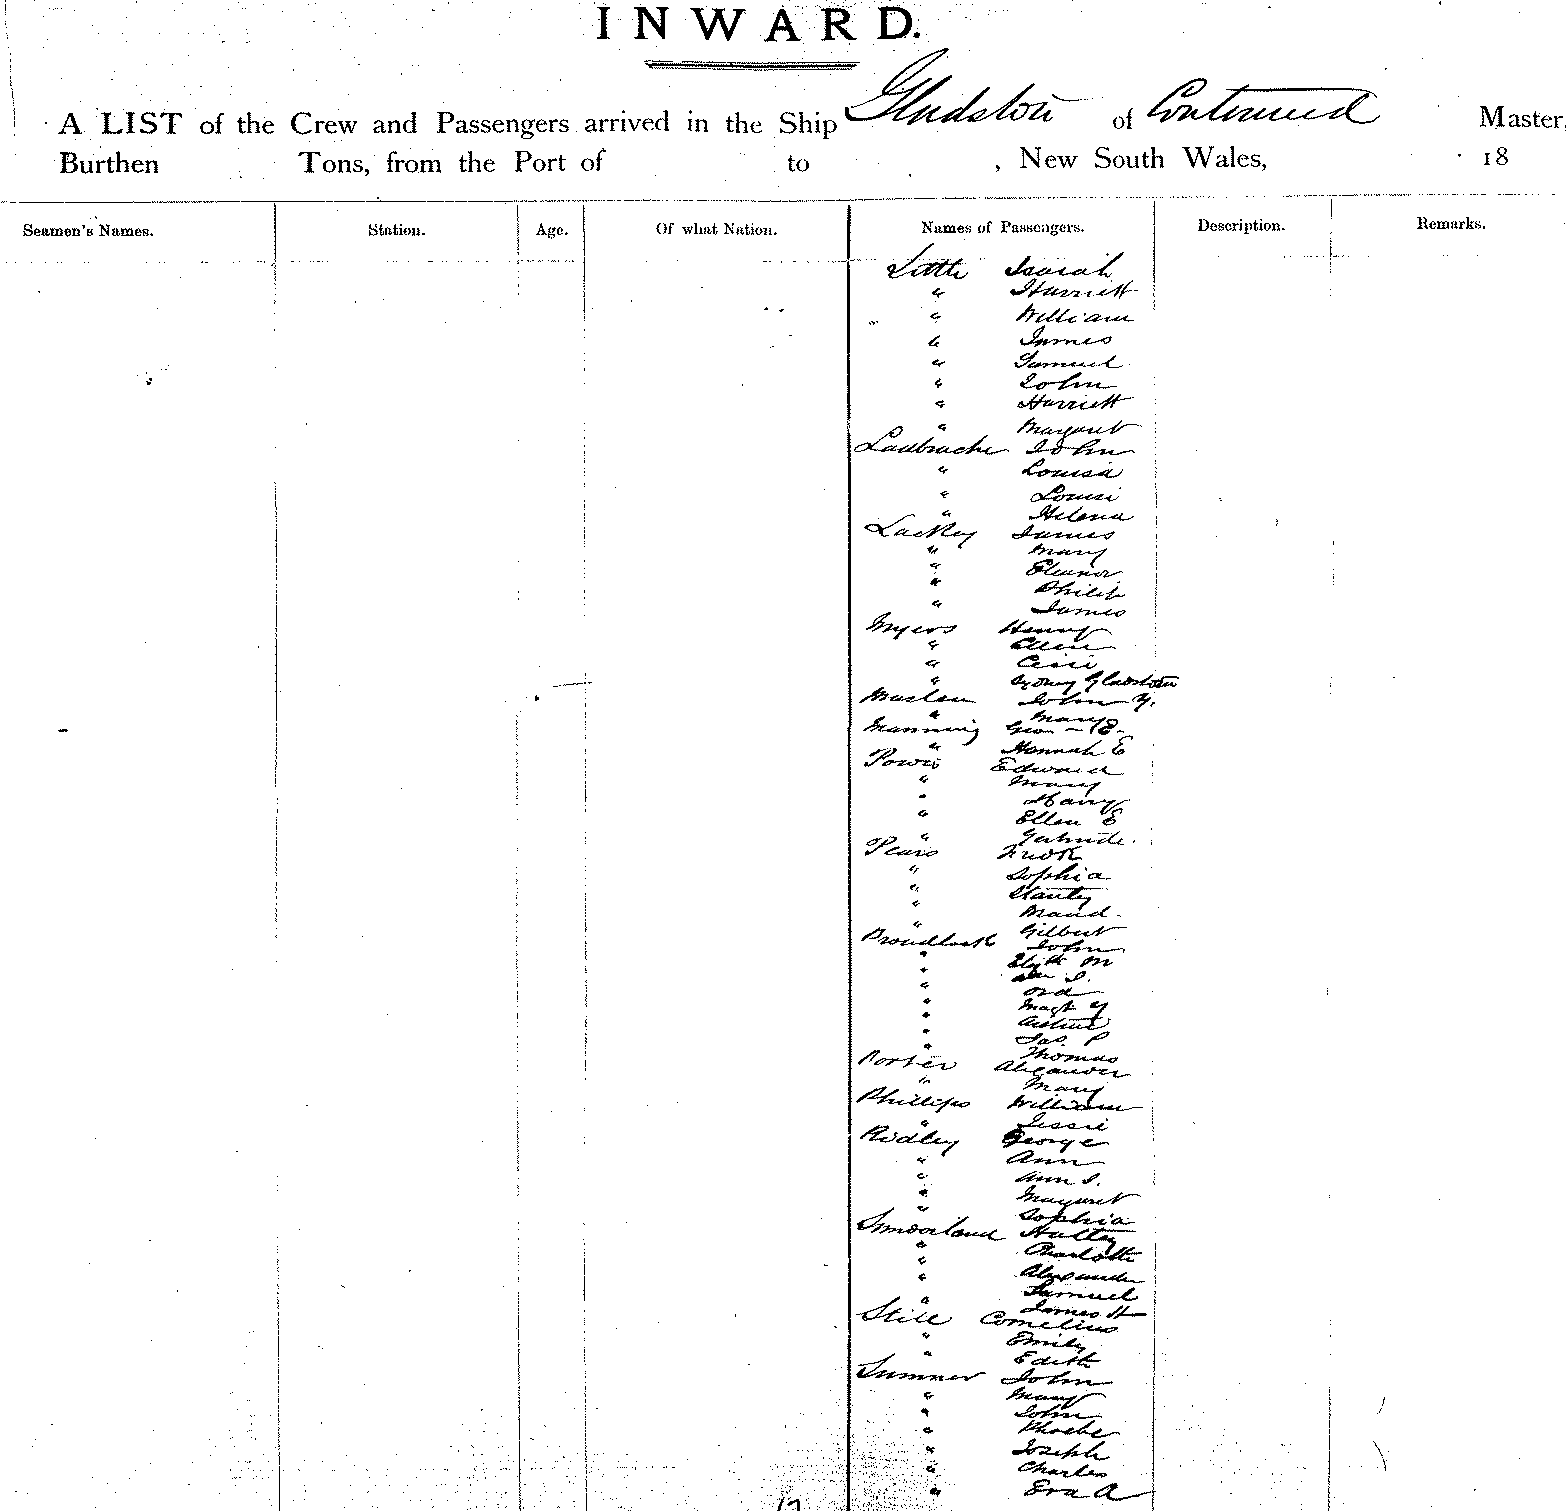 INWARD.
A LIST of the Crew and Passengers arrived in the Ship Gladston of Continued Master,
Burthen Tons, from the Port of to , New South Wales, 18
Seamen's Names. Station. Age. Of what Nation. Names of Passengers. Description. Remarks.
Little Isaiah
" Harriett
" William
" James
" Samuel
" John
" Harriett
" Margaret
John
" Louisa
" Louisi
" Helena
Lackey James
" Mary
" Eleanor
" Philip
" James
Myers Henry
" Ellen
"
" Sydney Gladston
Maslen John Y.
" Mary
Manning Geo E.
" Hannah E
Powis Edward
" Mary
" Harry
" Ellen E
" Gertrude
Pears Fredk
" Sophia
" Stanley
" Maud
" Gilbert
Proudlock John
" Elizth M
"
" Ord
" Magt Y
" Arthur
" Jas. P
" Thomas
Porter Alexander
" Mary
Phillips William
" Jessie
Ridley George
" Ann
" Ann I.
" Margaret
" Sophia
Sunderland
" Charlotte
" Alexander
" Samuel
" James H
Still Cornelius
" Emily
" Edith
Sumner John
" Mary
" John
" Phoebe
" Joseph
" Charles
" Eva A